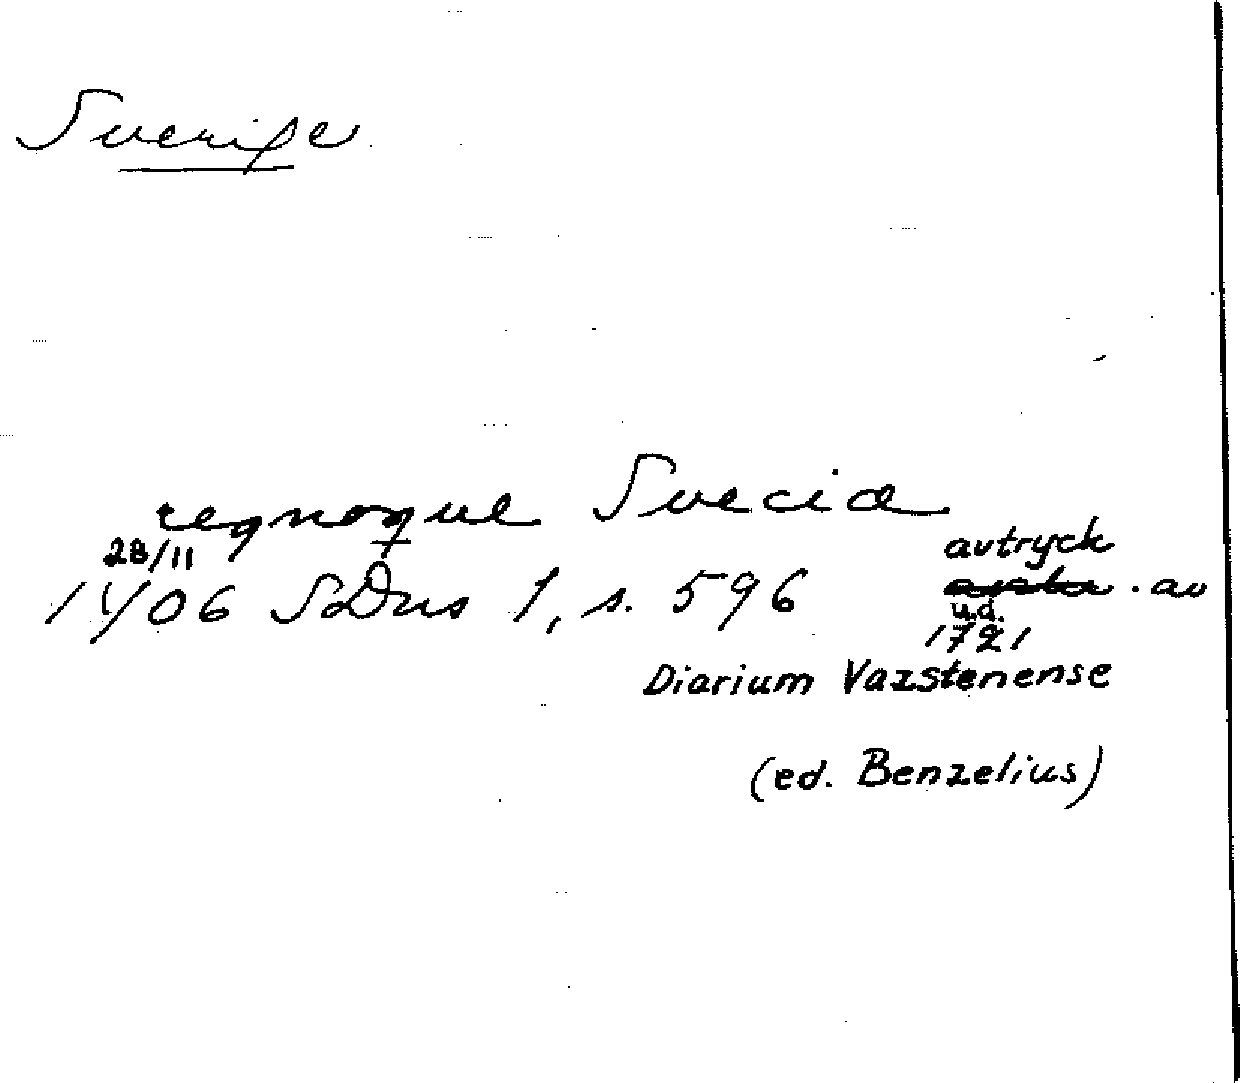 Sverige
regnoque Svecia
28/11
1406 SDns 1, s. 596
avtryck
av
u.å.
1721
Diarium Vazstenense
(ed. Benzelius)